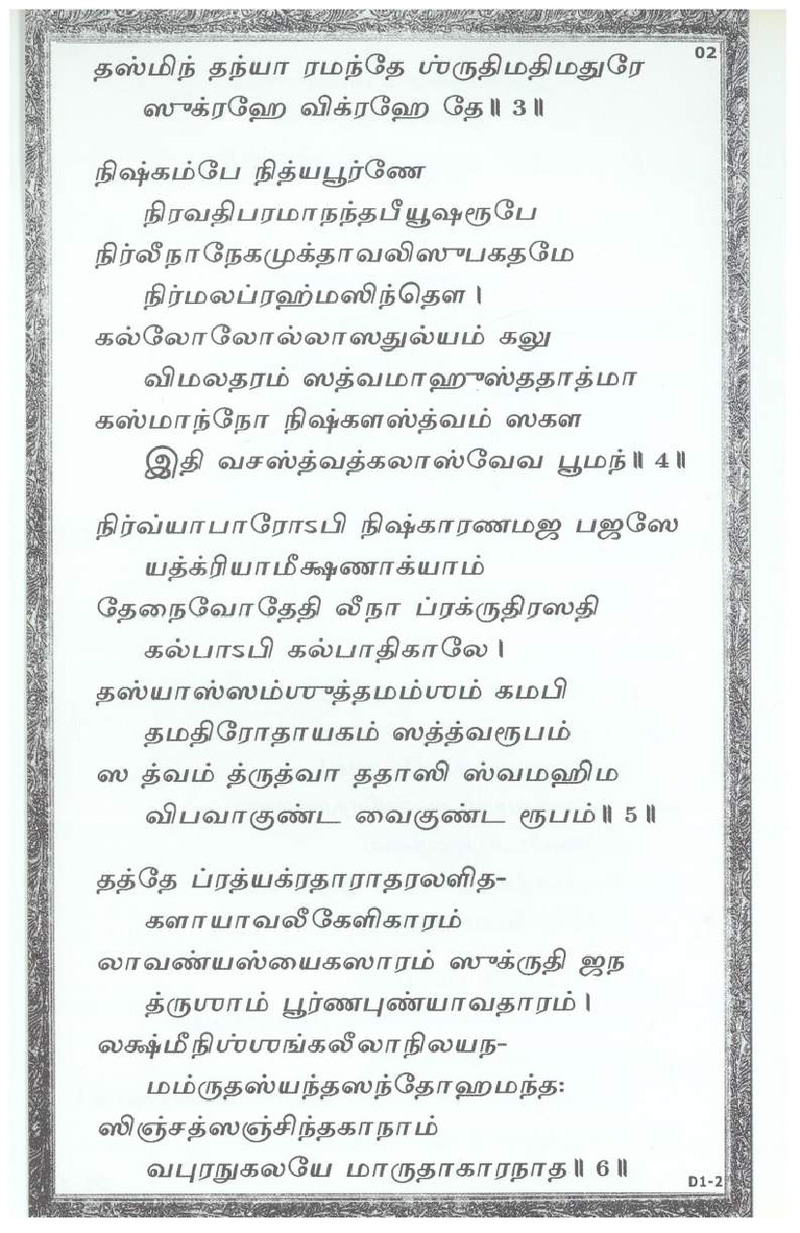 02
தஸ்மிந் தந்யா ரமந்தே ஶ்ருதிமதிமதுரே
ஸுக்ரஹே விக்ரஹே தே॥ 3॥
நிஷ்கம்பே நித்யபூர்ணே
நிரவதிபரமாநந்தபீயூஷரூபே
நிர்லீநாநேகமுக்தாவலிஸுபகதமே
நிர்மலப்ரஹ்மஸிந்தௌ।
கல்லோலோல்லாஸதுல்யம் கலு
விமலதரம் ஸத்வமாஹுஸ்ததாத்மா
கஸ்மாந்நோ நிஷ்களஸ்த்வம் ஸகள
இதி வசஸ்த்வத்கலாஸ்வேவ பூமந்॥ 4॥
நிர்வ்யாபாரோঽபி நிஷ்காரணமஜ பஜஸே
யத்க்ரியாமீக்ஷணாக்யாம்
தேநைவோதேதி லீநா ப்ரக்ருதிரஸதி
கல்பாঽபி கல்பாதிகாலே।
தஸ்யாஸ்ஸம்ஶுத்தமம்ஶம் கமபி
தமதிரோதாயகம் ஸத்த்வரூபம்
ஸ த்வம் த்ருத்வா ததாஸி ஸ்வமஹிம
விபவாகுண்ட வைகுண்ட ரூபம்॥ 5॥
தத்தே ப்ரத்யக்ரதாராதரலளித-
களாயாவலீகேளிகாரம்
லாவண்யஸ்யைகஸாரம் ஸுக்ருதி ஜந
த்ருஶாம் பூர்ணபுண்யாவதாரம்।
லக்ஷ்மீநிஶ்ஶங்கலீலாநிலயந-
மம்ருதஸ்யந்தஸந்தோஹமந்த:
ஸிஞ்சத்ஸஞ்சிந்தகாநாம்
வபுரநுகலயே மாருதாகாரநாத॥ 6॥
D1-2